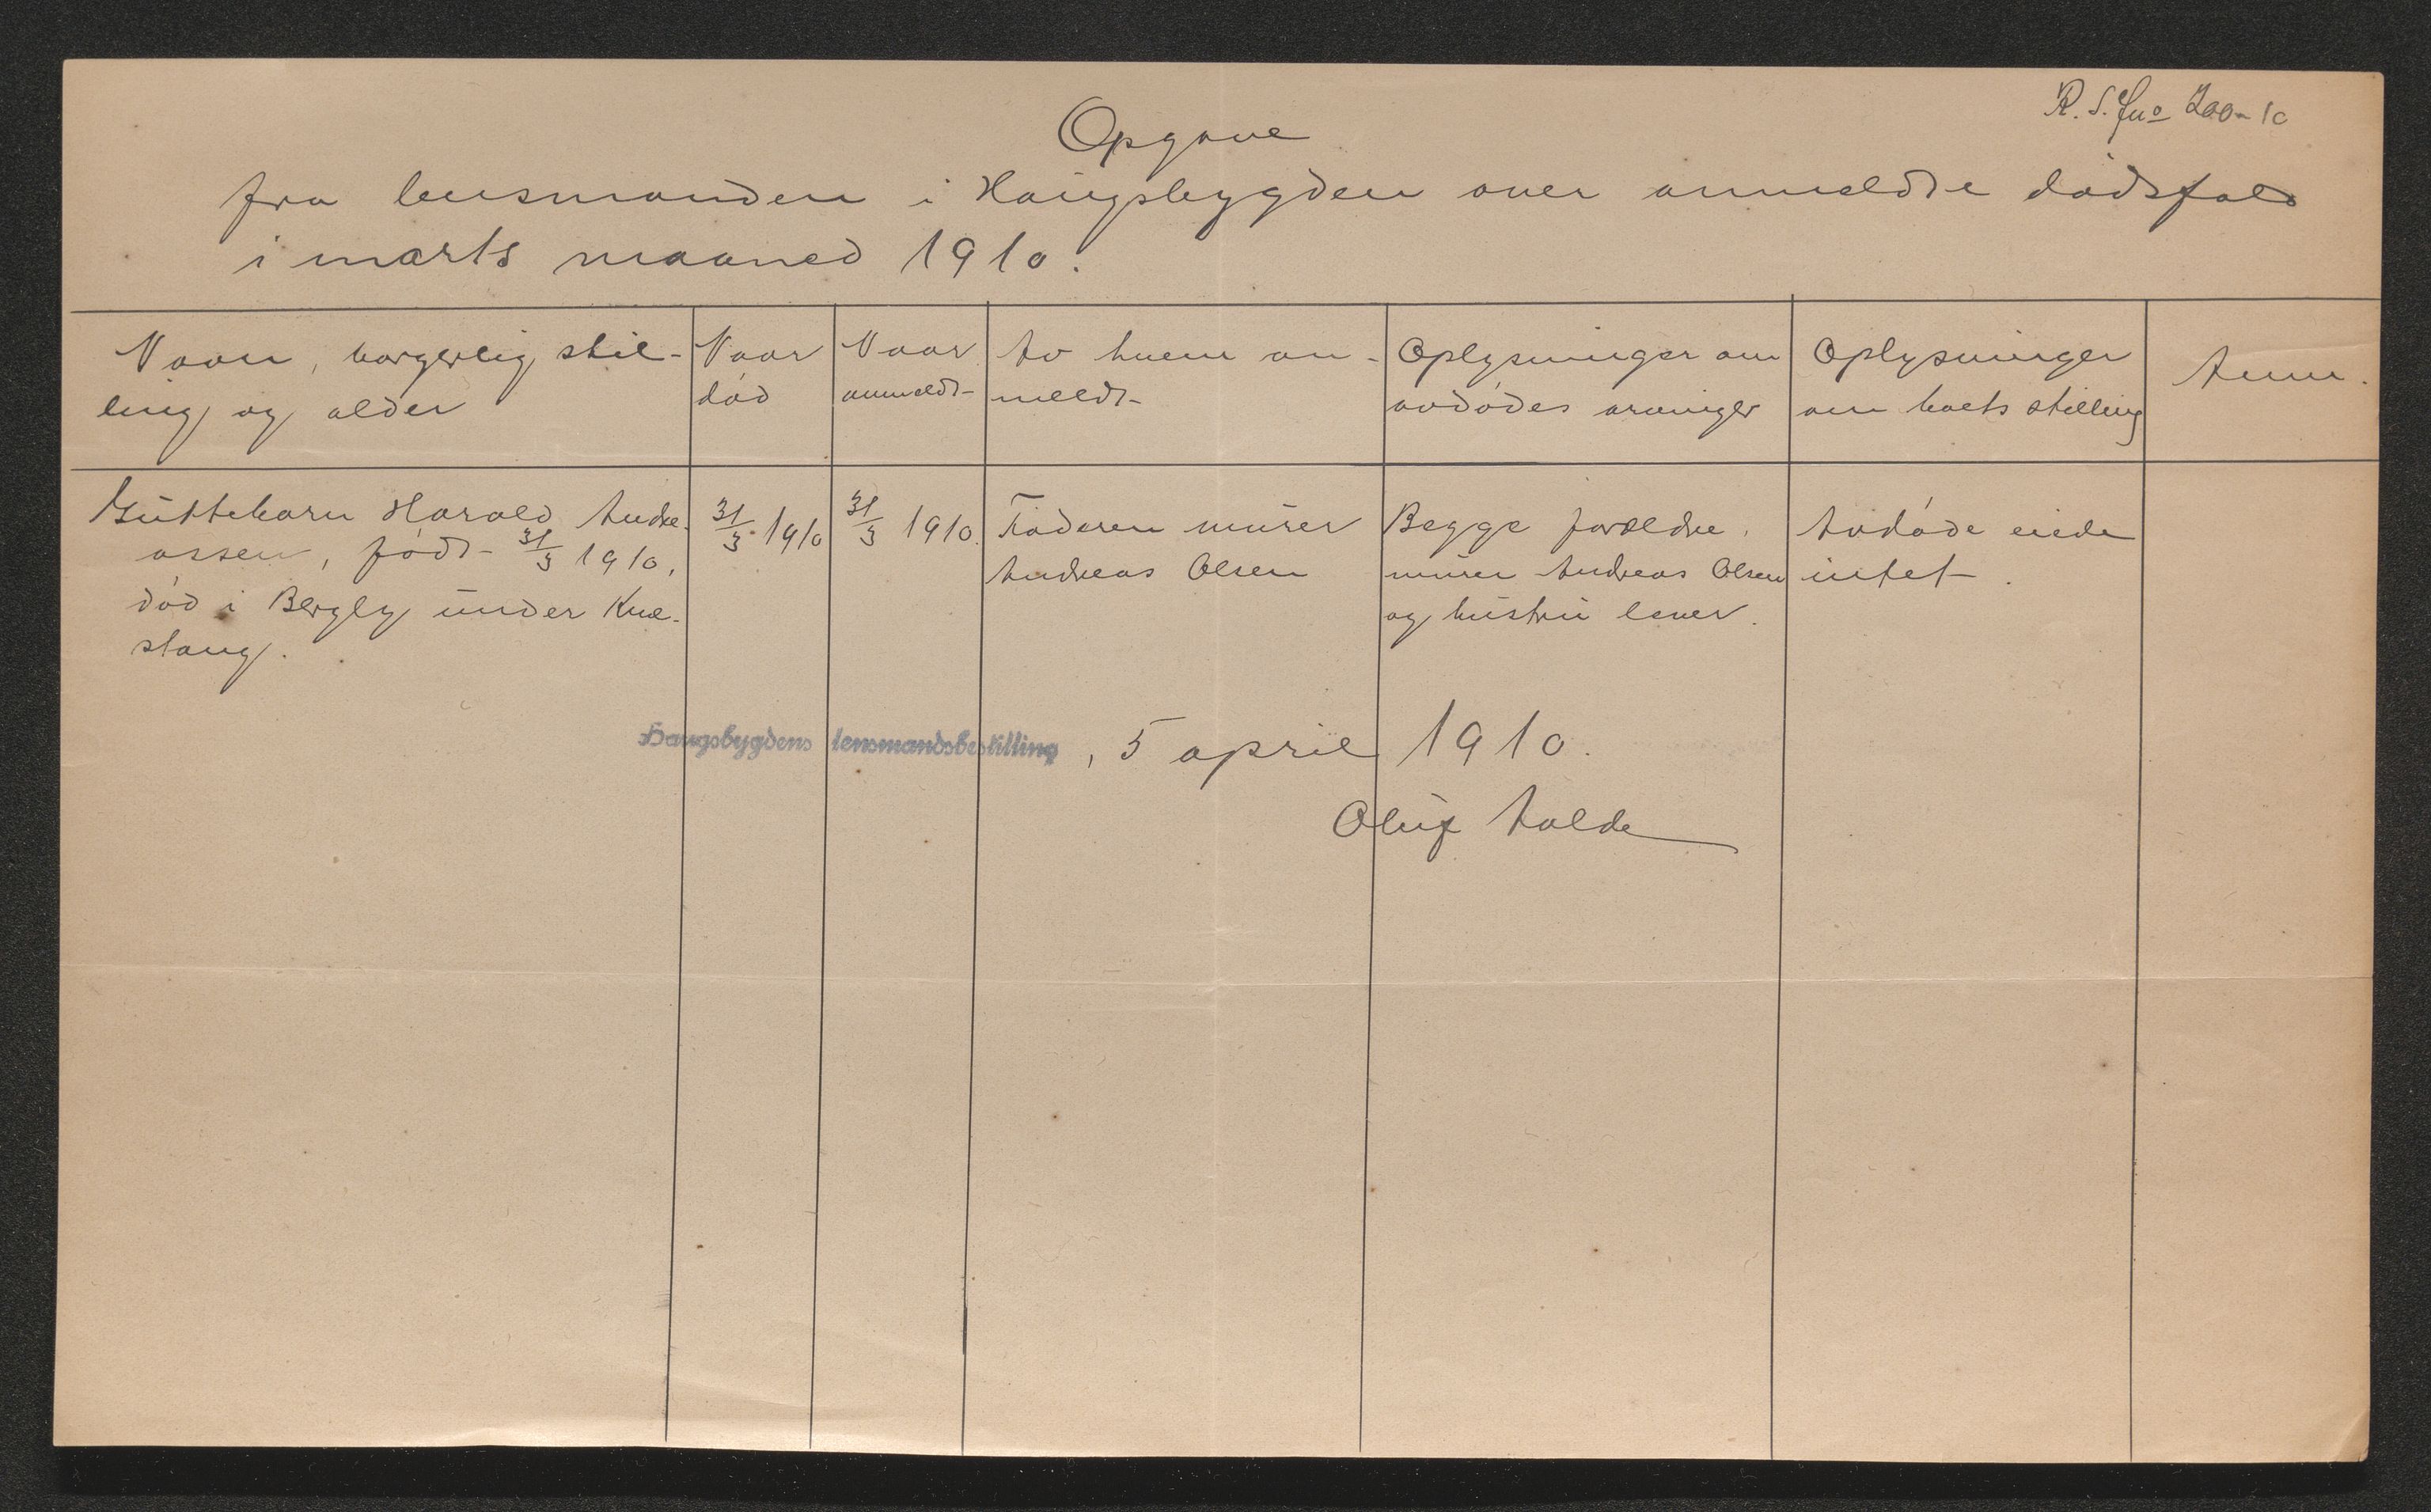 R. S. Jno 200-10
Opgave
fra lensmanden i Haugsbygden over anmeldte dødsfald
i marts maaned 1910.
Navn, borgerlig stil-
ling og alder
Naar
død
Naar
anmeldt
Av hvem an-
meldt
Oplysninger om
avdødes arvinger
Oplysninger
om boets stilling
Anm.
Guttebarn Harald Andre-
assen, født 31/3 1910,
død i Bergly under Knæ-
stang.
31/3 1910
31/3 1910.
Faderen murer
Andreas Olsen
Begge forældre,
murer Andreas Olsen
og hustru lever.
Avdøde eiede
intet.
Haugsbygdens lensmandsbestilling, 5 april 1910.
Oluf Aalde